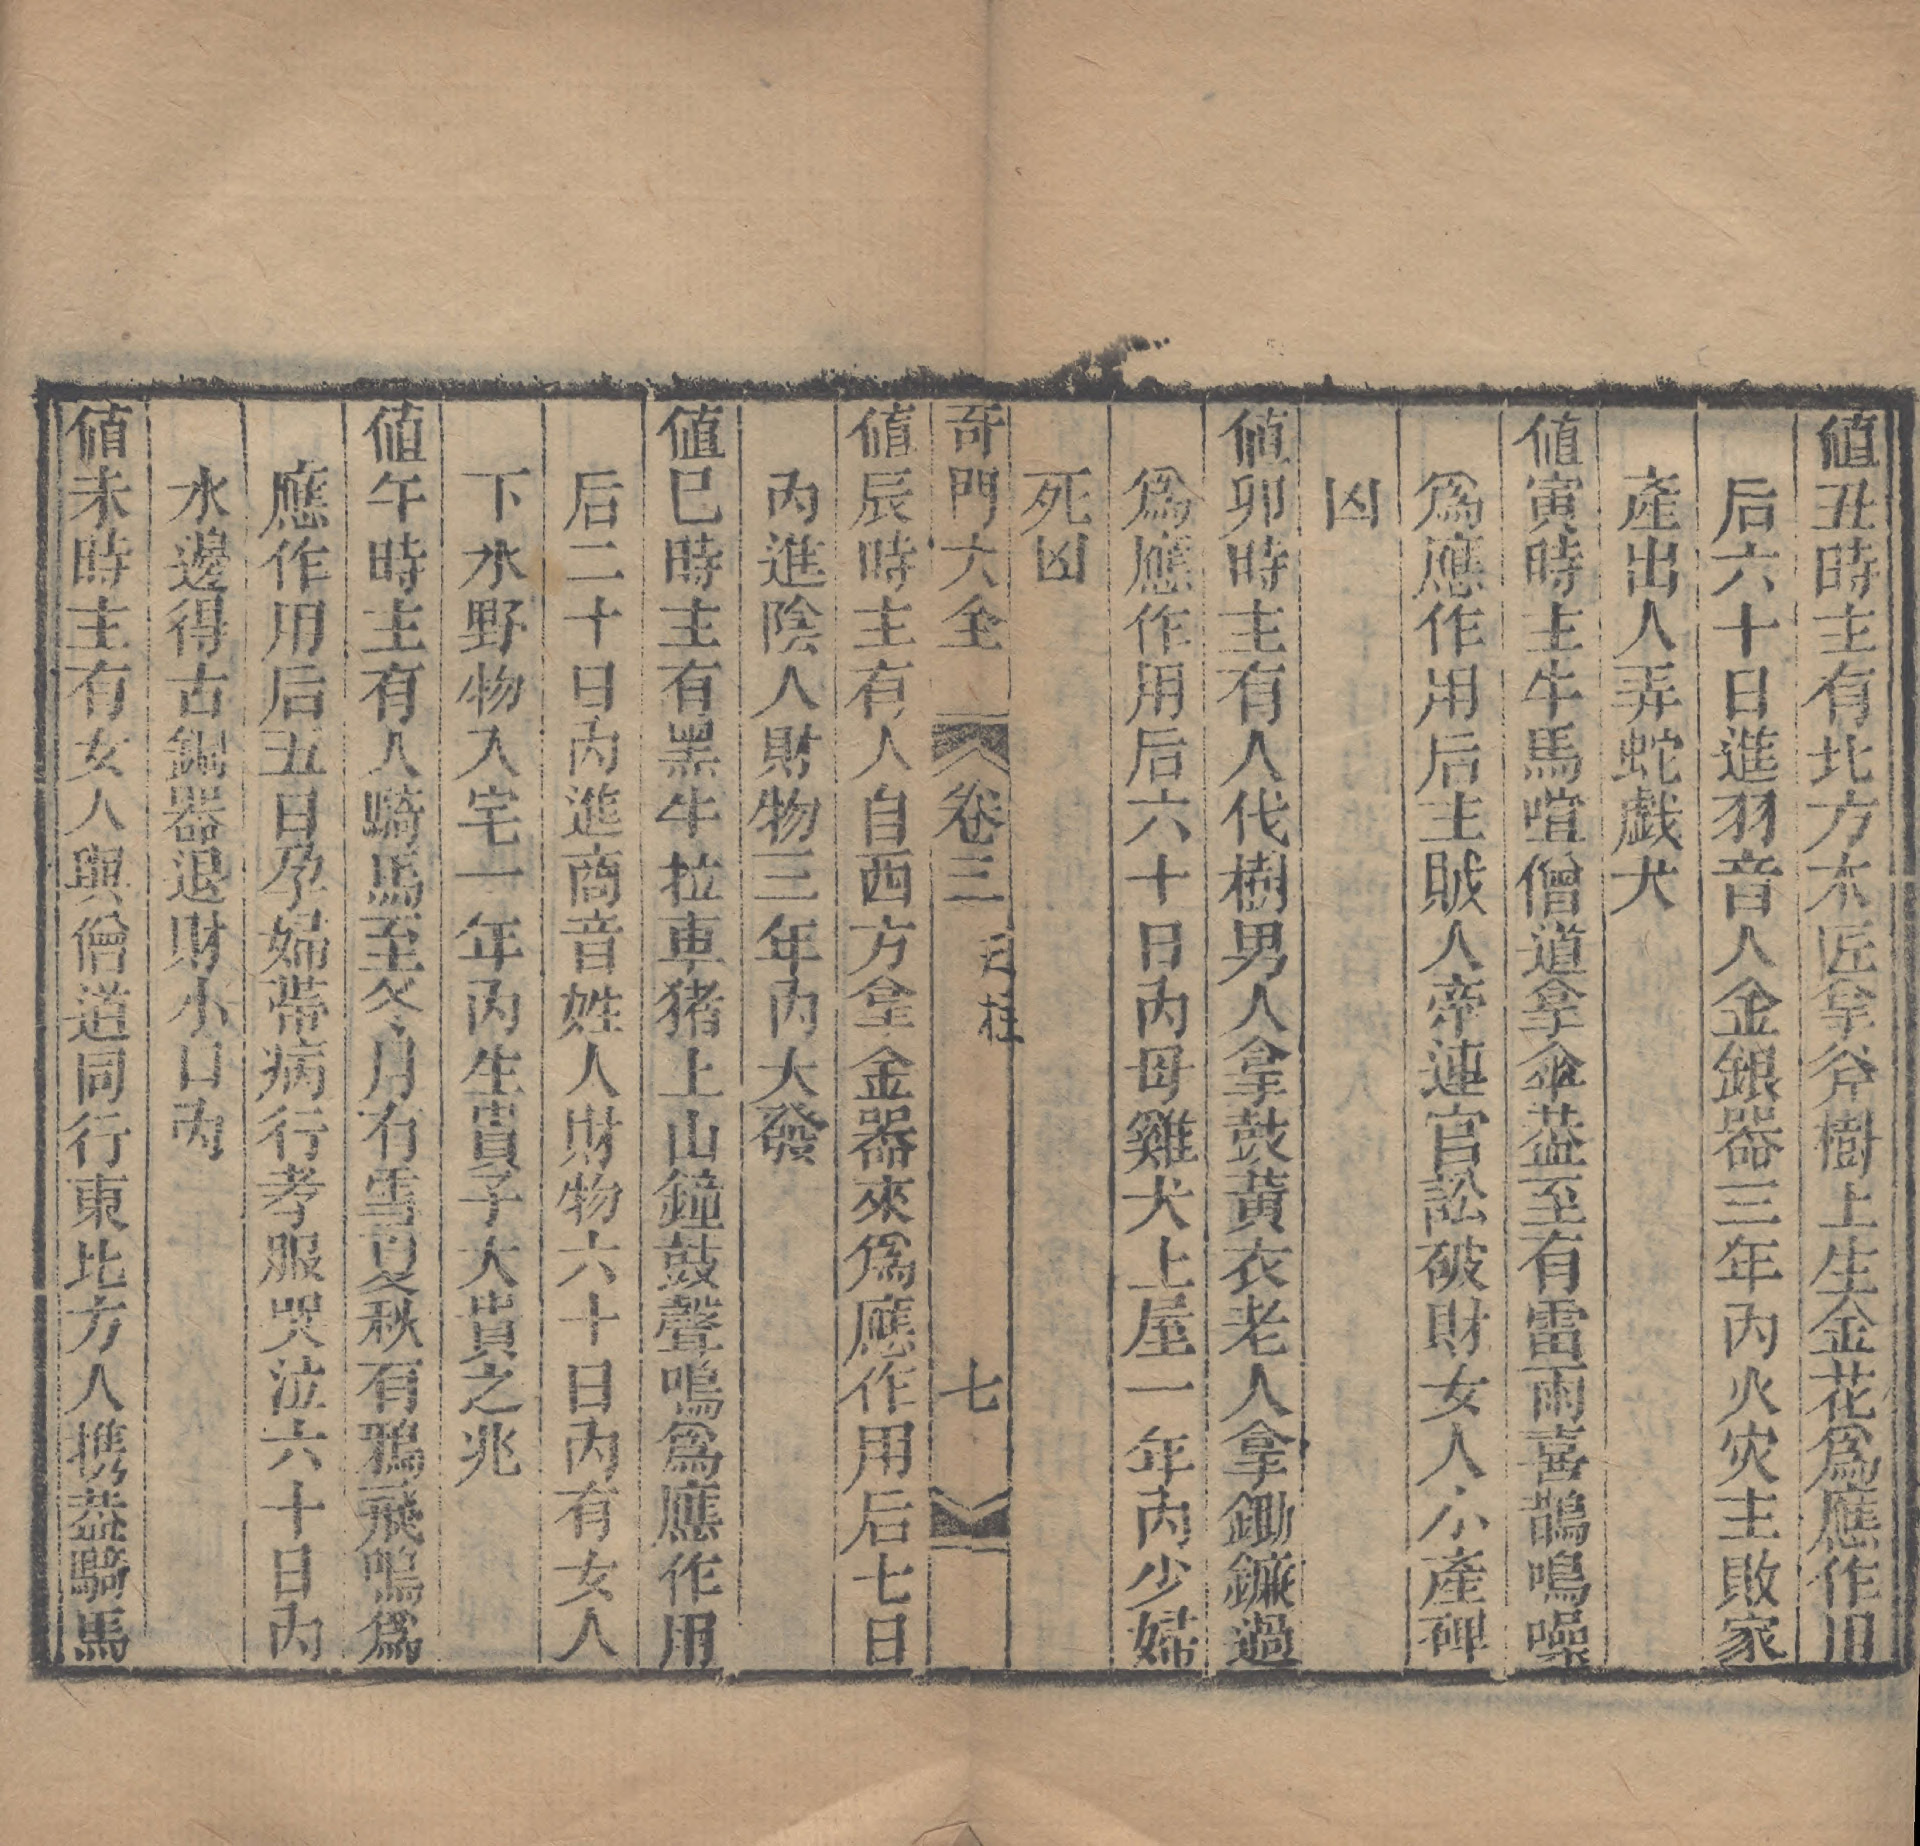 値丑時主有北方木匠拿斧樹上生金花爲應作用
后六十日進羽音人金銀器三年內火灾主敗家
產出人弄蛇戯犬
値寅時主牛馬喧僧道拿傘葢至有雷雨喜鵲鳴噪
爲應作用后主賊人帝連官訟破財女人小產碑
凶
値卯時主有人伐樹男人拿鼓黃衣老人拿鋤鐮過
爲應作用后六十日內母雞犬上屋一年內少婦
死凶
奇門大全 卷三 天柱 七
値辰時主有人自西方拿金器來爲應作用后七日
內進陰人財物三年內大發
値巳時主有黑牛拉車猪上山鐘鼓聲鳴爲應作用
后二十日內進商音姓人財物六十日內有女人
下水野物入宅一年內生貴子大貴之兆
値午時主有人騎馬至冬月有雪夏秋有鴉飛鳴爲
應作用后五日孕婦帶病行孝服哭泣六十日內
水邊得古銅器退財小口內
値未時主有女人與僧道同行東北方人携葢騎馬